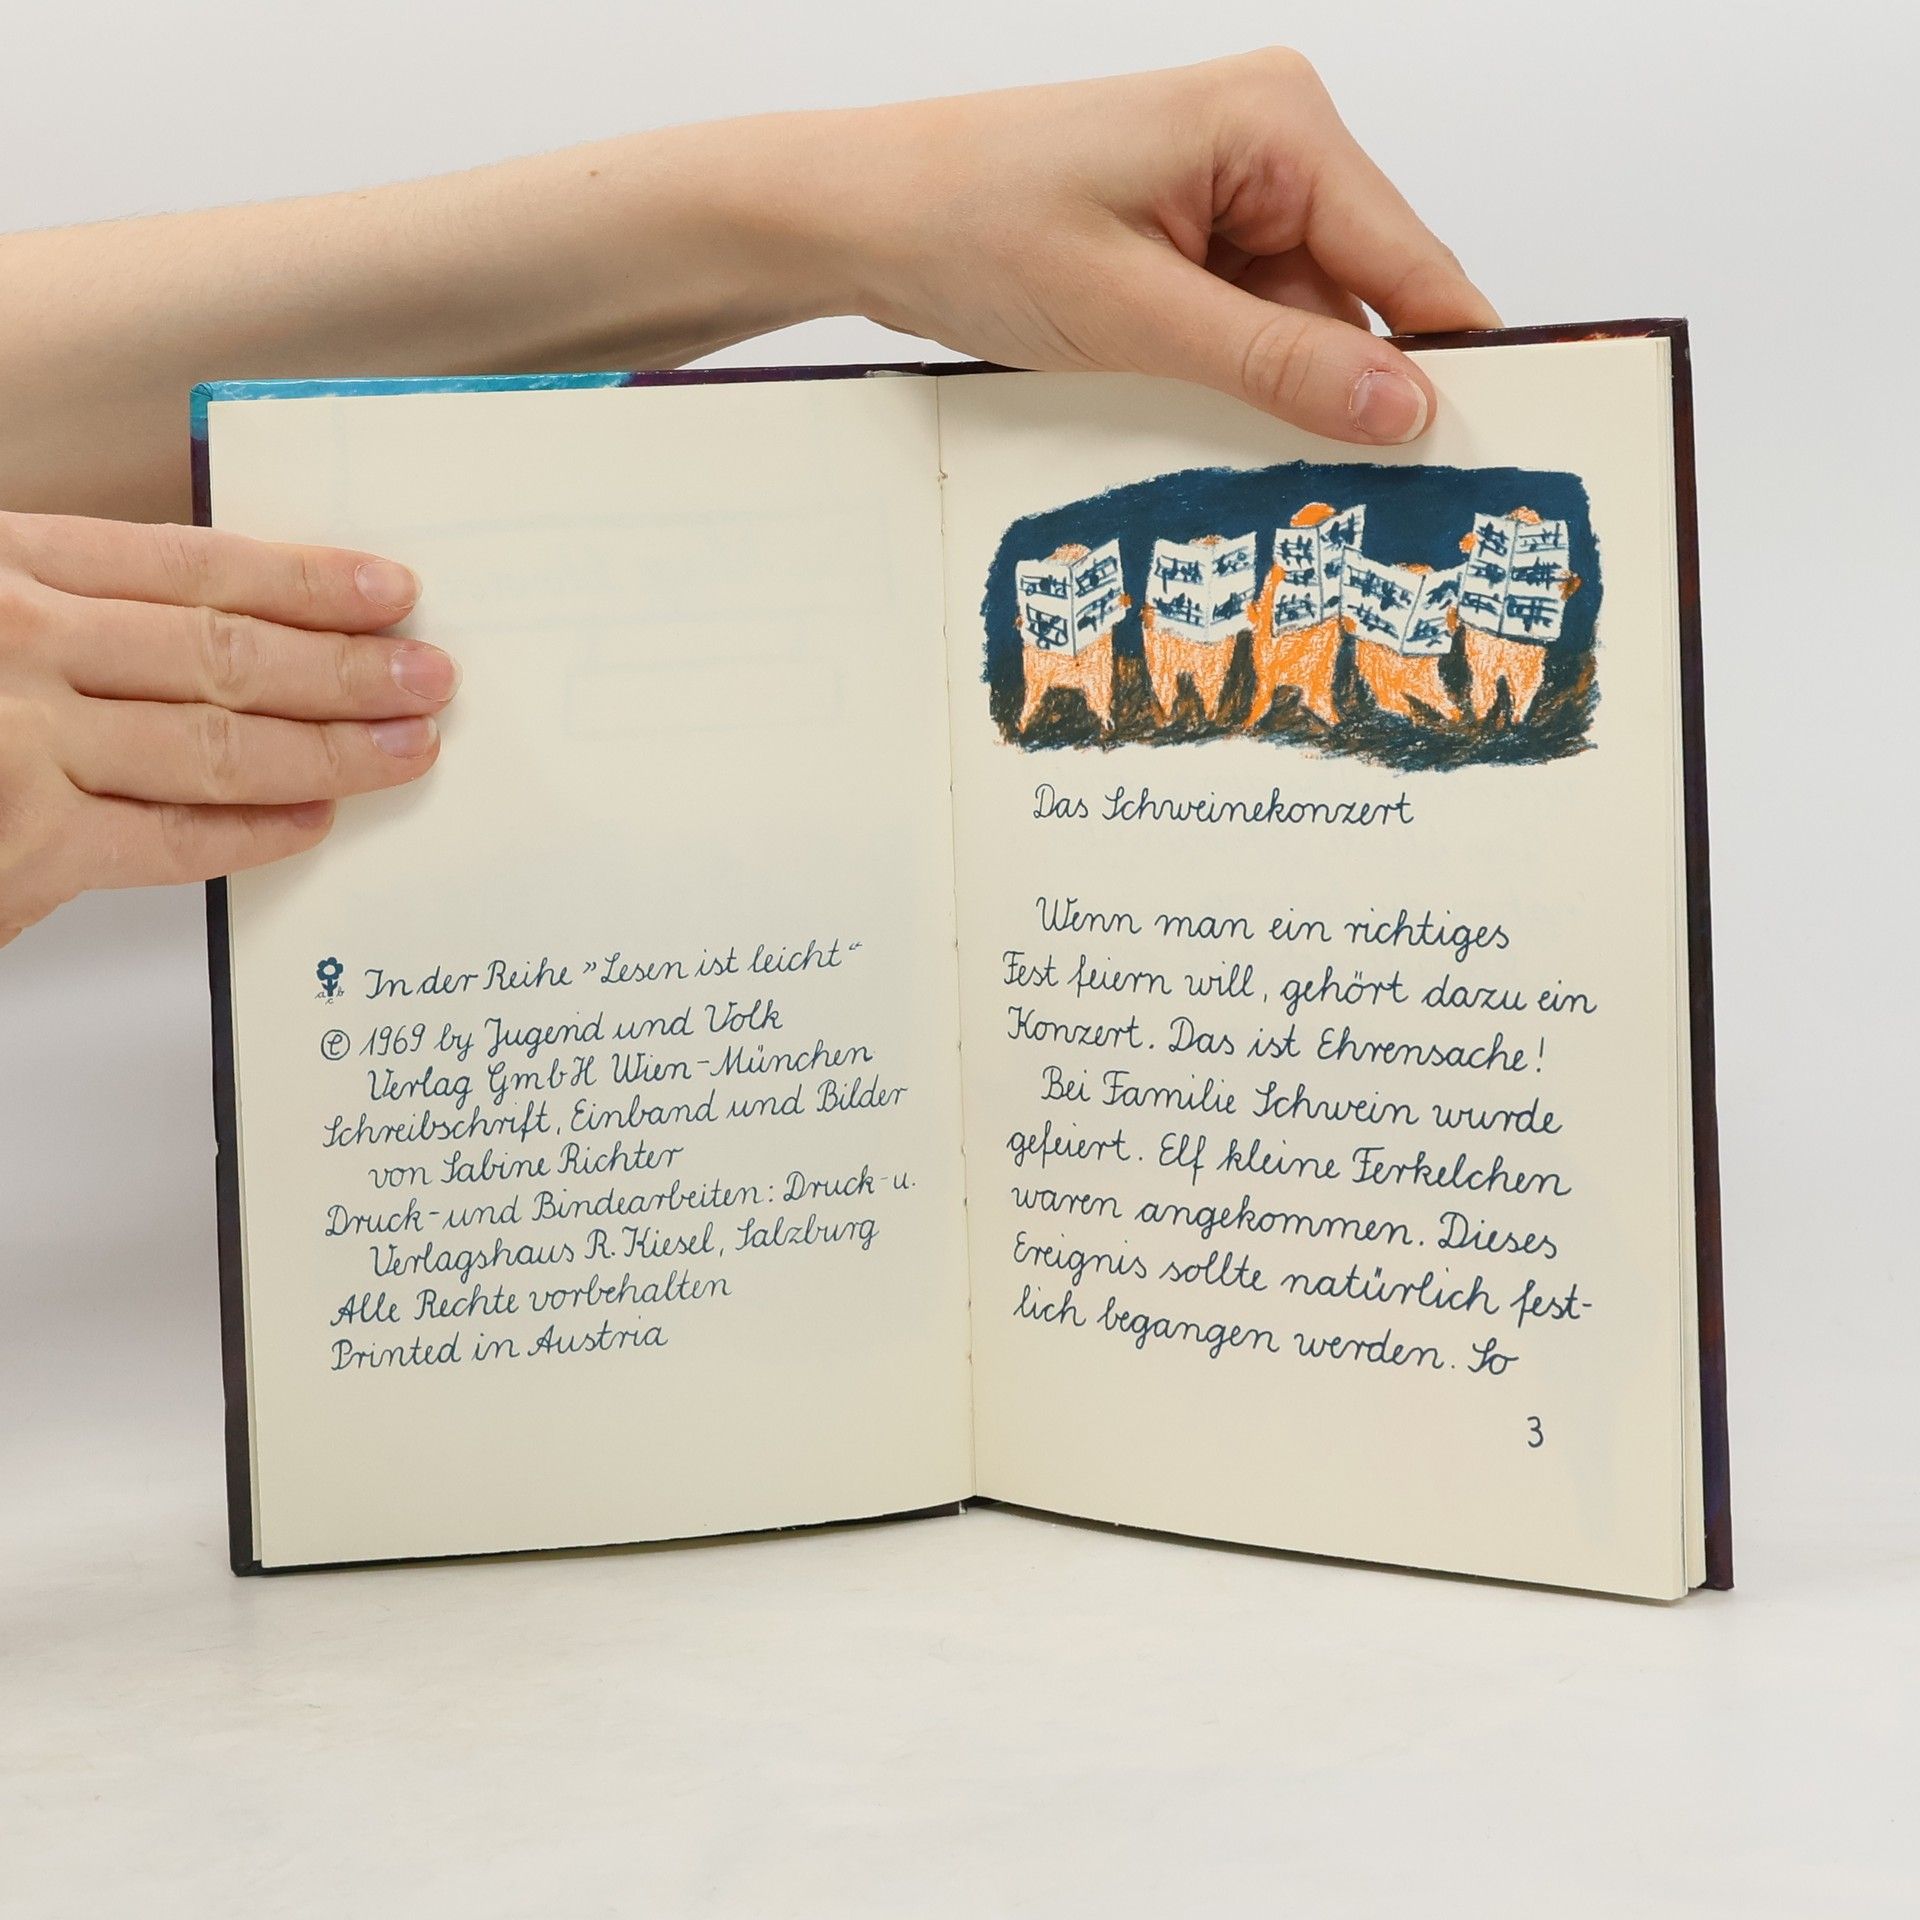 In der Reihe »Lesen ist leicht“
© 1969 by Jugend und Volk
Verlag GmbH Wien-München
Schreibschrift, Einband und Bilder
von Sabine Richter
Druck- und Bindearbeiten: Druck- u.
Verlagshaus R. Kiesel, Salzburg
Alle Rechte vorbehalten
Printed in Austria
Das Schweinekonzert
Wenn man ein richtiges
Fest feiern will, gehört dazu ein
Konzert. Das ist Ehrensache!
Bei Familie Schwein wurde
gefeiert. Elf kleine Ferkelchen
waren angekommen. Dieses
Ereignis sollte natürlich fest-
lich begangen werden. So
3